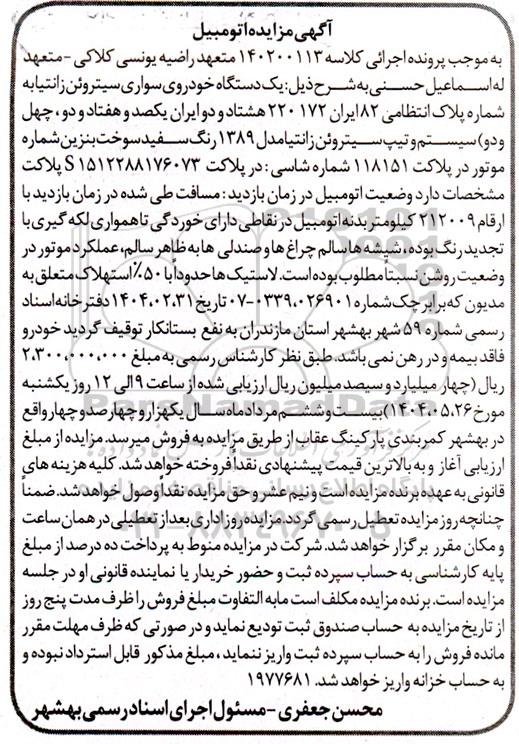 آگهی مزایده اتومبیل
به موجب پرونده اجرائی کلاسه ۱۴۰۲۰۰۱۱۳ متعهد راضیه یونسی کلاکی - متعهد
له اسماعیل حسنی به شرح ذیل: یک دستگاه خودروی سواری سیتروئن زانتیا به
شماره پلاک انتظامی ۸۲ ایران ۱۷۲ ۲۲۰ هشتاد و دو ایران یکصد و هفتاد و دو، چهل
و دو) سیستم و تیپ سیتروئن زانتیا مدل ۱۳۸۹ رنگ سفید سوخت بنزین شماره
موتور در پلاکت ۱۱۸۱۵۱ شماره شاسی: در پلاکت S۱۵۱۲۲۸۸۱۷۶۰۷۳ پلاکت
مشخصات دارد وضعیت اتومبیل در زمان بازدید: مسافت طی شده در زمان بازدید با
ارقام ۲۱۲۰۰۹ کیلومتر بدنه اتومبیل در نقاطی دارای خوردگی ناهمواری لکه گیری با
تجدید رنگ بوده، شیشه ها سالم چراغ ها و صندلی ها به ظاهر سالم، عملکرد موتور در
وضعیت روشن نسبتاً مطلوب بوده است. لاستیک ها حدوداً با ۵۰٪ استهلاک متعلق به
مدیون که برابر چک شماره ۰۷-۰۳۳۹،۰۲۶۹۰۱ تاریخ ۱۴۰۴،۰۲،۳۱ دفترخانه اسناد
رسمی شماره ۵۹ شهر بهشهر استان مازندران به نفع بستانکار توقیف گردید خودرو
فاقد بیمه و در رهن نمی باشد. طبق نظر کارشناس رسمی به مبلغ ۲،۳۰۰،۰۰۰،۰۰۰
ریال (چهار میلیارد و سیصد میلیون ریال ارزیابی شده از ساعت ۹ الی ۱۲ روز یکشنبه
مورخ ۱۴۰۴،۰۵،۲۶) بیست و ششم مرداد ماه سال یکهزار و چهارصد و چهار واقع
در بهشهر کمربندی پارکینگ عقاب از طریق مزایده به فروش میرسد. مزایده از مبلغ
ارزیابی آغاز و به بالاترین قیمت پیشنهادی نقداً فروخته خواهد شد. کلیه هزینه های
قانونی به عهده برنده مزایده است و نیم عشر و حق مزایده نقداً وصول خواهد شد. ضمناً
چنانچه روز مزایده تعطیل رسمی گردد. مزایده روز اداری بعد از تعطیلی در همان ساعت
و مکان مقرر برگزار خواهد شد. شرکت در مزایده منوط به پرداخت ده درصد از مبلغ
پایه کارشناسی به حساب سپرده ثبت و حضور خریدار یا نماینده قانونی او در جلسه
مزایده است. برنده مزایده مکلف است مابه التفاوت مبلغ فروش را ظرف مدت پنج روز
از تاریخ مزایده به حساب صندوق ثبت تودیع نماید و در صورتی که ظرف مهلت مقرر
مانده فروش را به حساب سپرده ثبت واریز ننماید، مبلغ مذکور قابل استرداد نبوده و
به حساب خزانه واریز خواهد شد. ۱۹۷۷۶۸۱
محسن جعفری - مسئول اجرای اسناد رسمی بهشهر